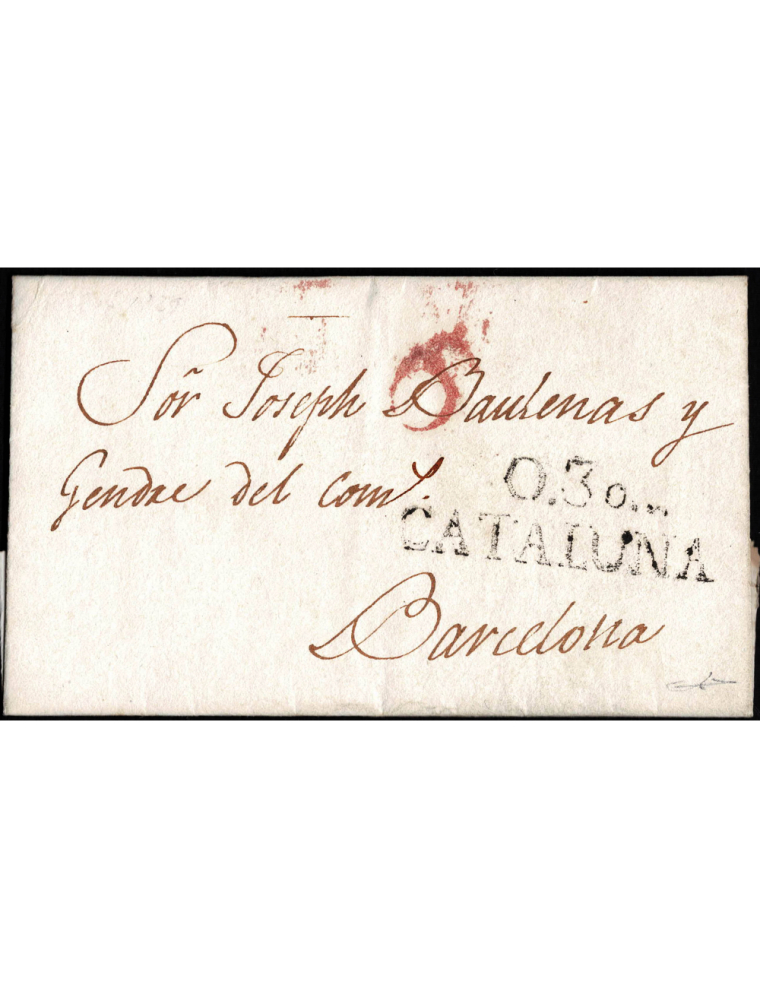 6
Sor̃ Joseph Baulenas y
Gendre del comº.
O.3o...
CATALUÑA
Barcelona